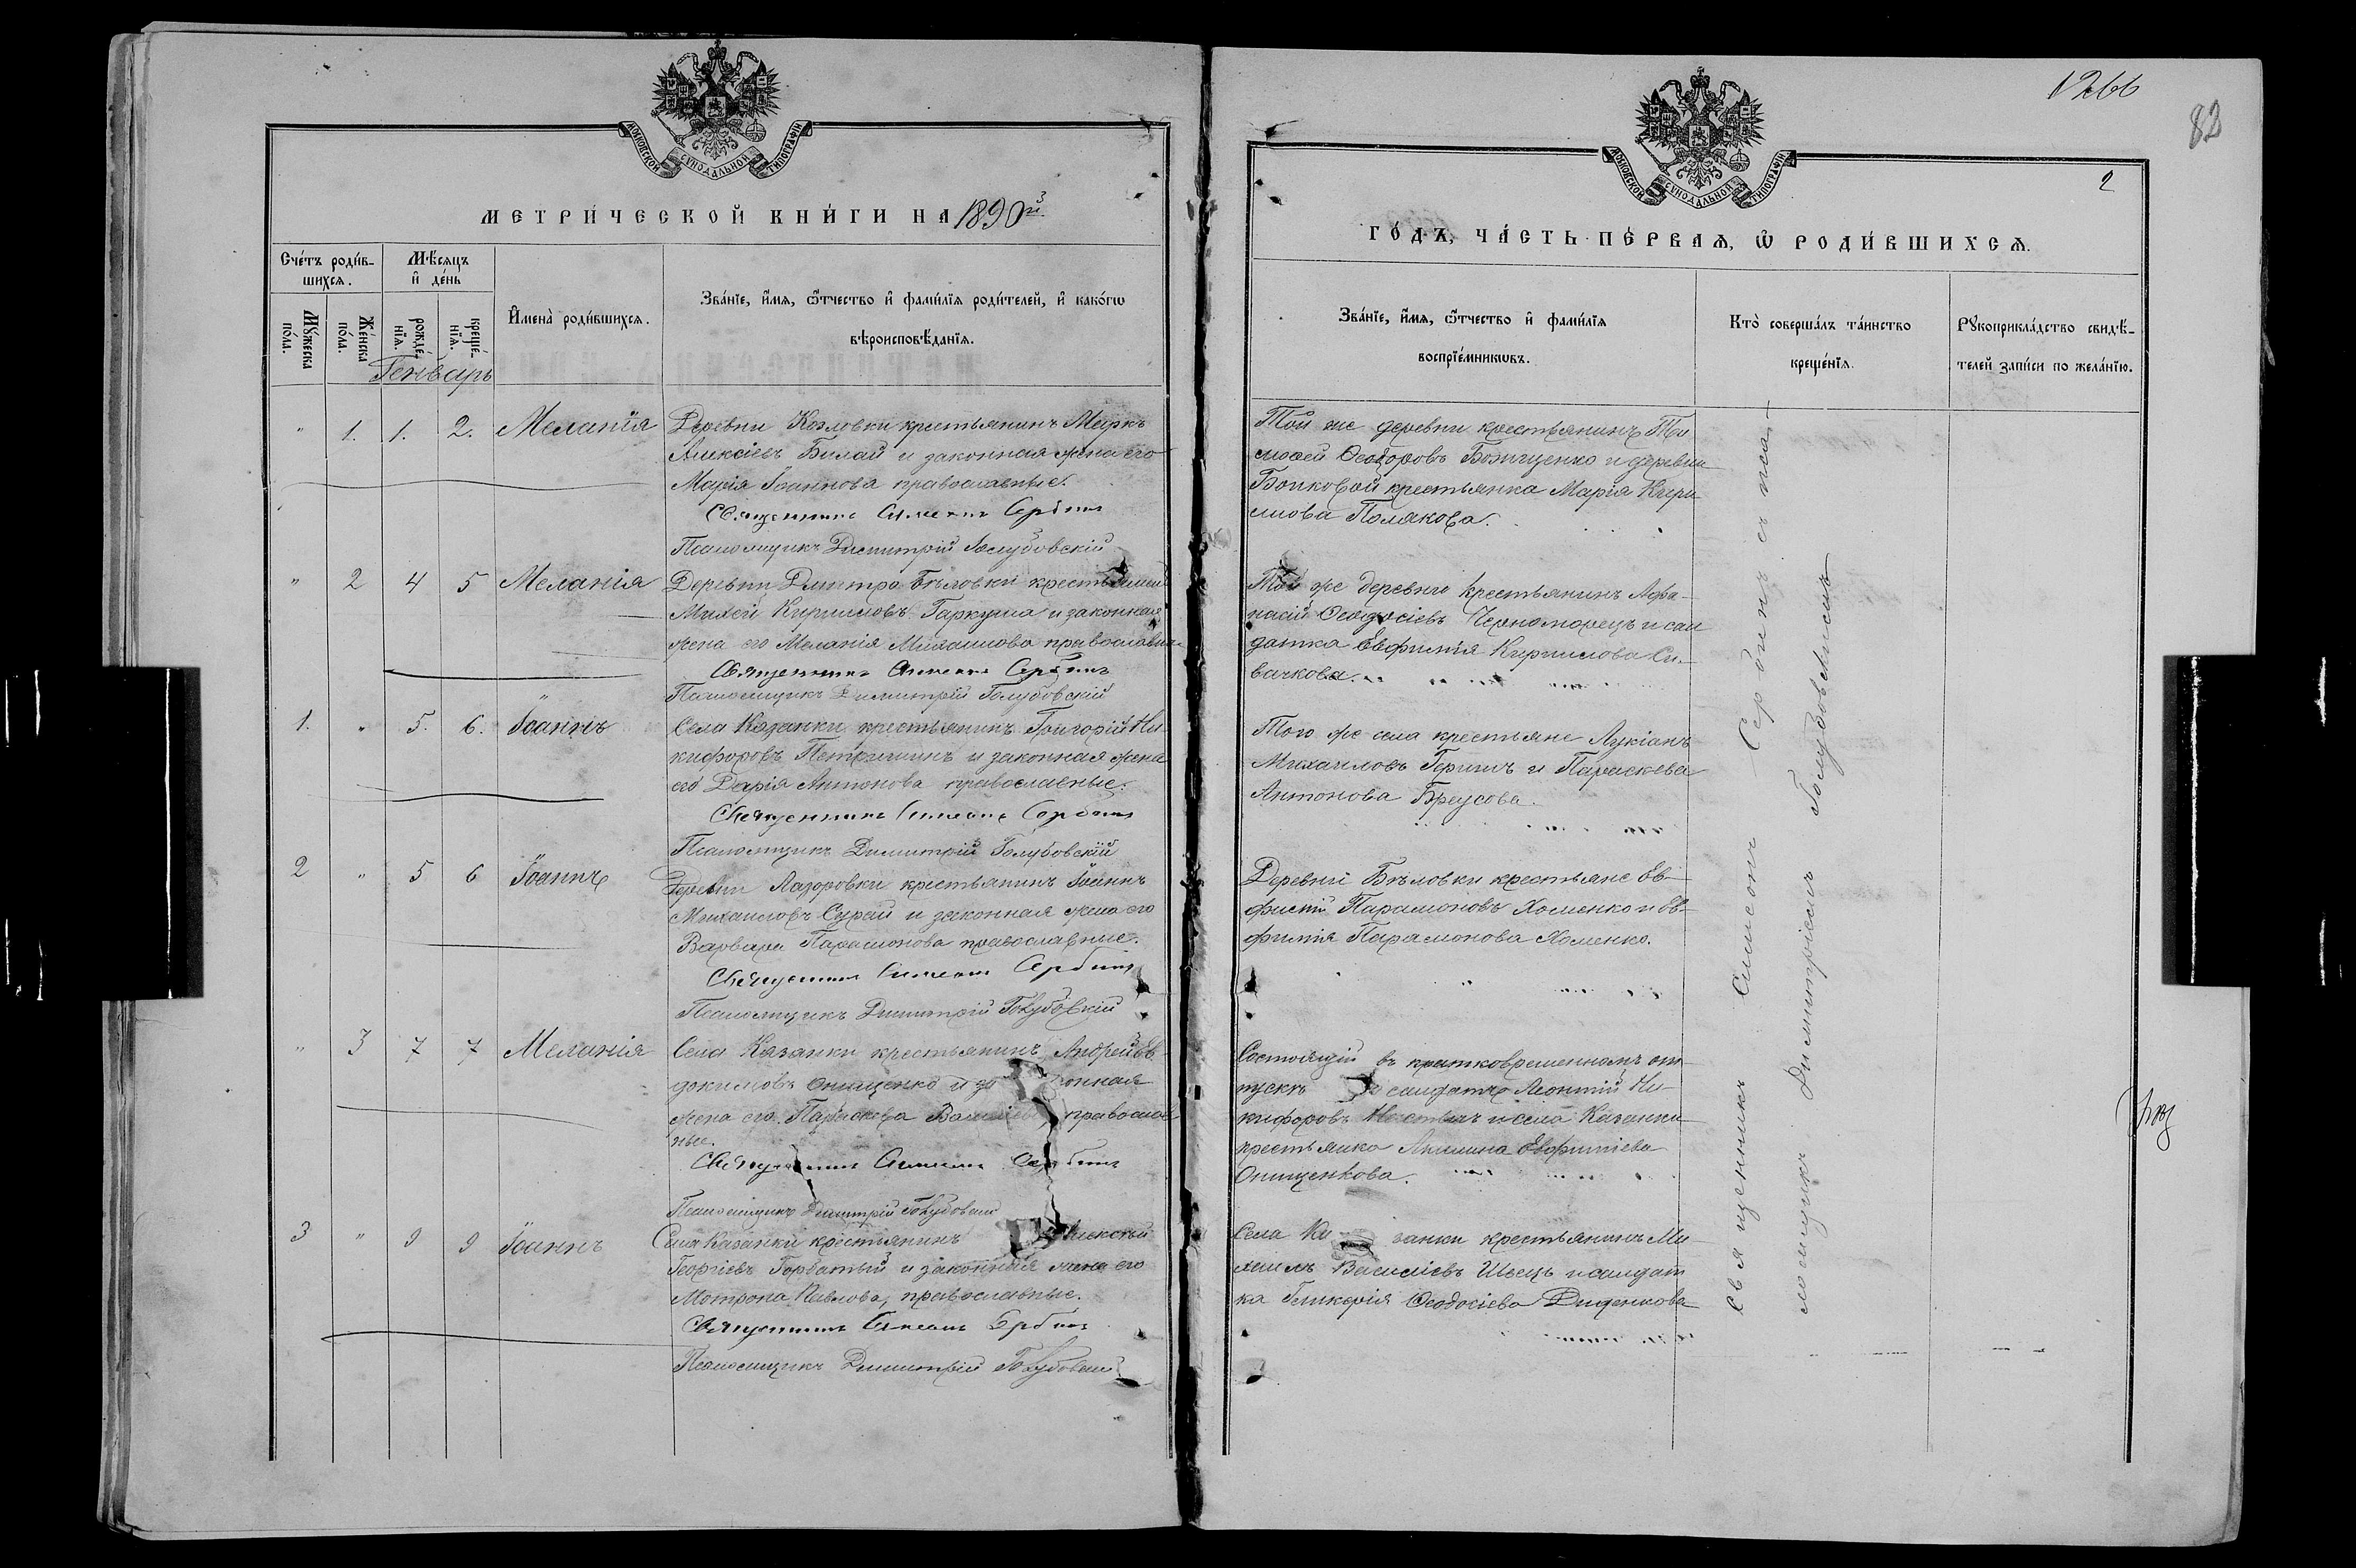 МОСКОВСКОЙ СѴНОДАЛЬНОЙ ТИПОГРАФІИ
МЕТРИ́ЧЕСКОЙ КНИ́ГИ НА 1890й
Сче́тъ роди́в-
шихсѧ.
Мѣ́сѧцъ
и҆ де́нь
И҆мена̀ роди́вшихсѧ.
Зва́нїе, и҆́мѧ, ѻ҆́тчество и҆ фами́лїѧ роди́телей, и҆ како́гѡ
вѣроисповѣ́данїѧ.
Мꙋ́жеска
по́ла.
Же́нска
по́ла.
рожде́-
нїѧ.
креще́-
нїѧ.
Генварь
" 1. 1. 2. Меланія
Деревни Козловки крестьянинъ Маркъ
Алексіевъ Билай и законная жена его
Марія Іоаннова православные.
Священникъ Симеонъ Сербинъ
Псаломщикъ Димитрій Голубовскій
" 2 4 5 Меланія
Деревни Дмитро-Бѣловки крестьянинъ
Михей Кирилловъ Гаркуша и законная
жена его Меланія Михаилова православны
Священникъ Симеонъ Сербинъ
Псаломщикъ Димитрій Голубовскій
1. " 5. 6. Іоаннъ
Села Казанки крестьянинъ Григорій Ни-
кифоровъ и законная жена
его Дарія Антонова православные.
Священникъ Симеонъ Сербинъ
Псаломщикъ Димитрій Голубовскій
2 " 5 6 Іоаннъ
Деревни Лазоровки крестьянинъ Іоаннъ
Михаиловъ Сурай и законная жена его
Варвара Парамонова православные.
Священникъ Симеонъ Сербинъ
Псаломщикъ Димитрій Голубовскій
" 3 7 7 Меланія
Села Казанки крестьянинъ Андрей Ев-
докимовъ Онищенко и за онная
жена его Параскева православ
ные.
Священникъ Симеонъ Сербинъ
Псаломщикъ Димитрій Голубовскій
3 " 9 9 Іоаннъ
Села Казанки крестьянинъ
Георгіевъ Горбатый и законная жена его
Мотрона Павлова, православные.
Священникъ Симеонъ Сербинъ
Псаломщикъ Димитрій Голубовскій
1266
82
2
МОСКОВСКОЙ СѴНОДАЛЬНОЙ ТИПОГРАФІИ
ГО́ДЪ, ЧА́СТЬ ПЕ́РВАѦ, Ѽ РОДИ́ВШИХСѦ.
Зва́нїе, и҆́мѧ, ѻ҆́тчество и҆ фами́лїѧ
воспрїе́мникѡвъ.
Кто̀ соверша́лъ та́инство
креще́нїѧ.
Рꙋкоприкла́дство свидѣ́-
телей за́писи по жела́нїю.
Той же деревни крестьянинъ Ти
моѳей Ѳеодоровъ Божущенко и деревни
Бойковой крестьянка Марія Кири
лова Полякова.
Той же деревни крестьянинъ Афа-
насій Ѳеодосіевъ Черноморецъ и сол
датка Евфимія Кириллова Си-
вачкова.
Того же села крестьяне Лукіанъ
Михаиловъ и Параскева
Антонова Бреусова.
Деревни Бѣловки крестьяне Ев-
фимій Парамоновъ Хоменко и Ев-
фимія Парамонова Хоменко.
Состоящій въ кратковременномъ от
пускѣ солдатъ Леонтій Ни-
кифоровъ и села Казанки
крестьянка Акилина Евфиміева
Онищенкова.
Села Ка занки крестьянинъ Ми-
хаилъ Василіевъ Швецъ и солдат
ка Гликерія Ѳеодосіева Диденкова
Священникъ Симеонъ Сербинъ съ пса-
ломщикъ Димитріемъ Голубовскимъ